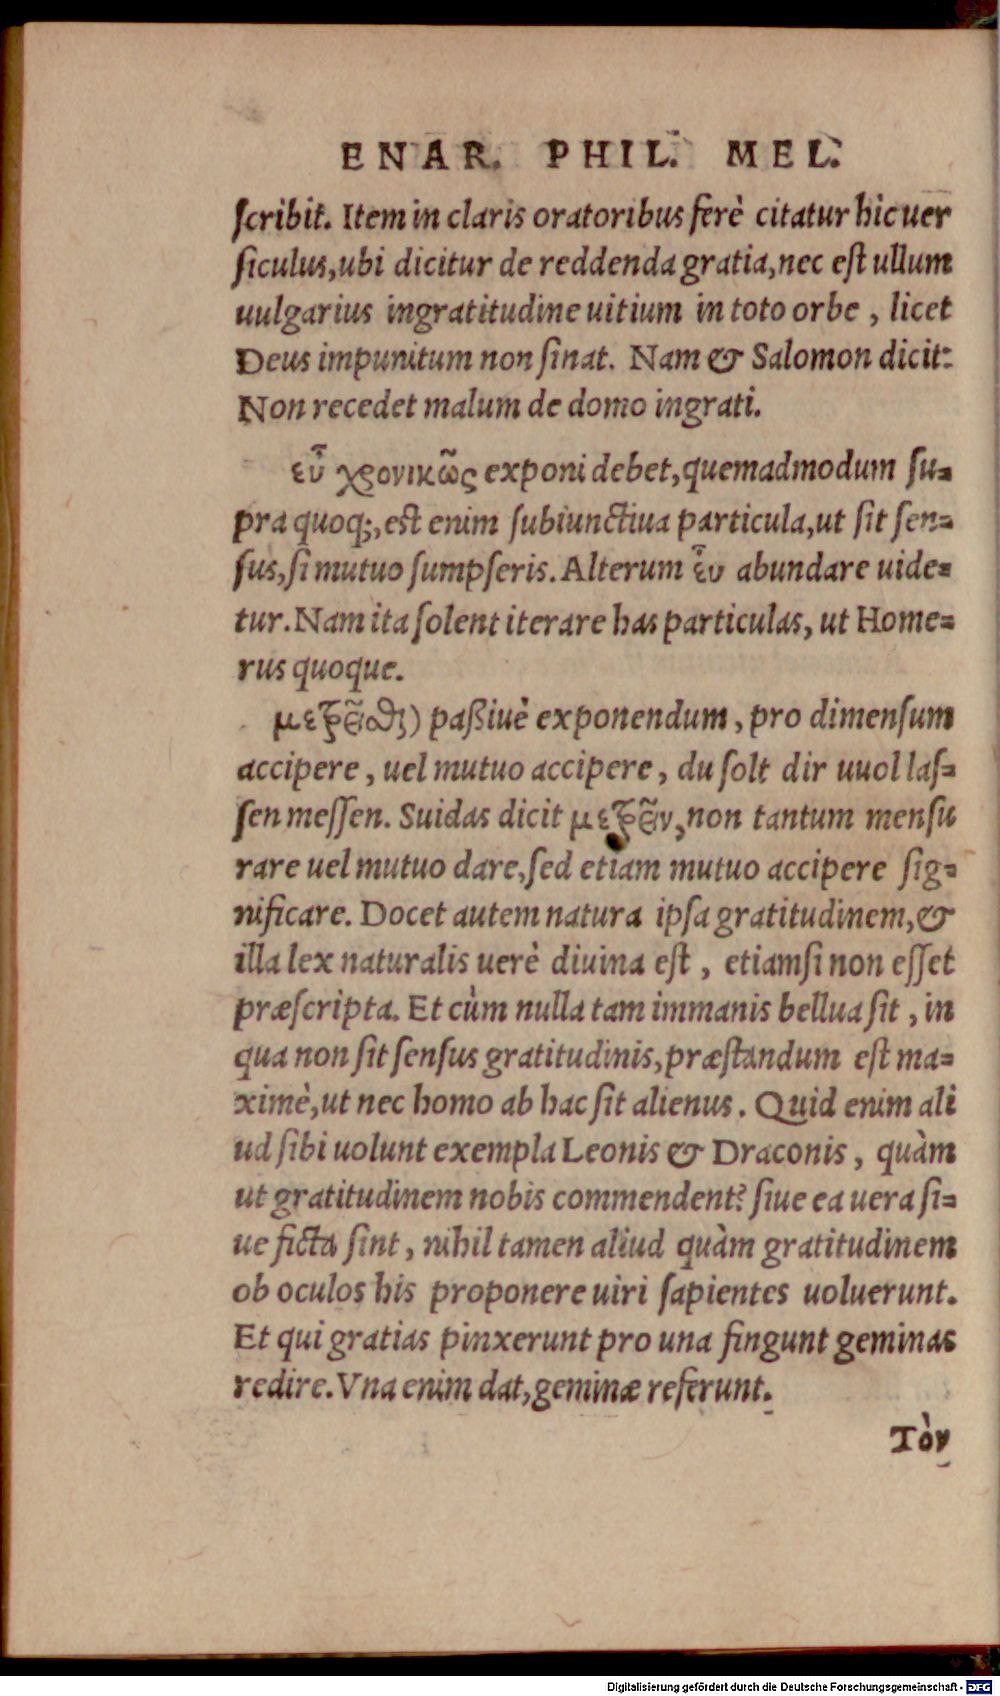 ENAR. PHIL. MEL.
ſcribit. Item in claris oratoribus ferè citatur hic uer
ſiculus, ubi dicitur de reddenda gratia, nec eſt ullum
uulgarius ingratitudine uitium in toto orbe, licet
Deus impunitum non ſinat. Nam & Salomon dicit:
Non recedet malum de domo ingrati.
εὖ χρονικῶς exponi debet, quemadmodum ſu-
pra quoq;, est enim ſubiunctiua particula, ut ſit ſen-
ſus, ſi mutuo ſumpſeris. Alterum εὖ abundare uide-
tur. Nam ita ſolent iterare has particulas, ut Home-
rus quoque.
μετρεῖσθαι) paßiuè exponendum, pro dimenſum
accipere, uel mutuo accipere, du ſolt dir uuol laſ-
ſen meſſen. Suidas dicit μετρεῖν, non tantum menſu
rare uel mutuo dare, ſed etiam mutuo accipere ſig-
nificare. Docet autem natura ipſa gratitudinem, &
illa lex naturalis uerè diuina eſt, etiamſi non eſſet
præſcripta. Et cùm nulla tam immanis bellua ſit, in
qua non ſit ſenſus gratitudinis, præſtandum eſt ma-
ximè, ut nec homo ab hac ſit alienus. Quid enim ali
ud ſibi uolunt exempla Leonis & Draconis, quàm
ut gratitudinem nobis commendent? ſiue ea uera ſi-
ue ficta ſint, nihil tamen aliud quàm gratitudinem
ob oculos his proponere uiri ſapientes uoluerunt.
Et qui gratias pinxerunt pro una fingunt geminas
redire. Vna enim dat, geminæ referunt.
Τὸν
Digitalisierung gefördert durch die Deutsche Forschungsgemeinschaft - DFG